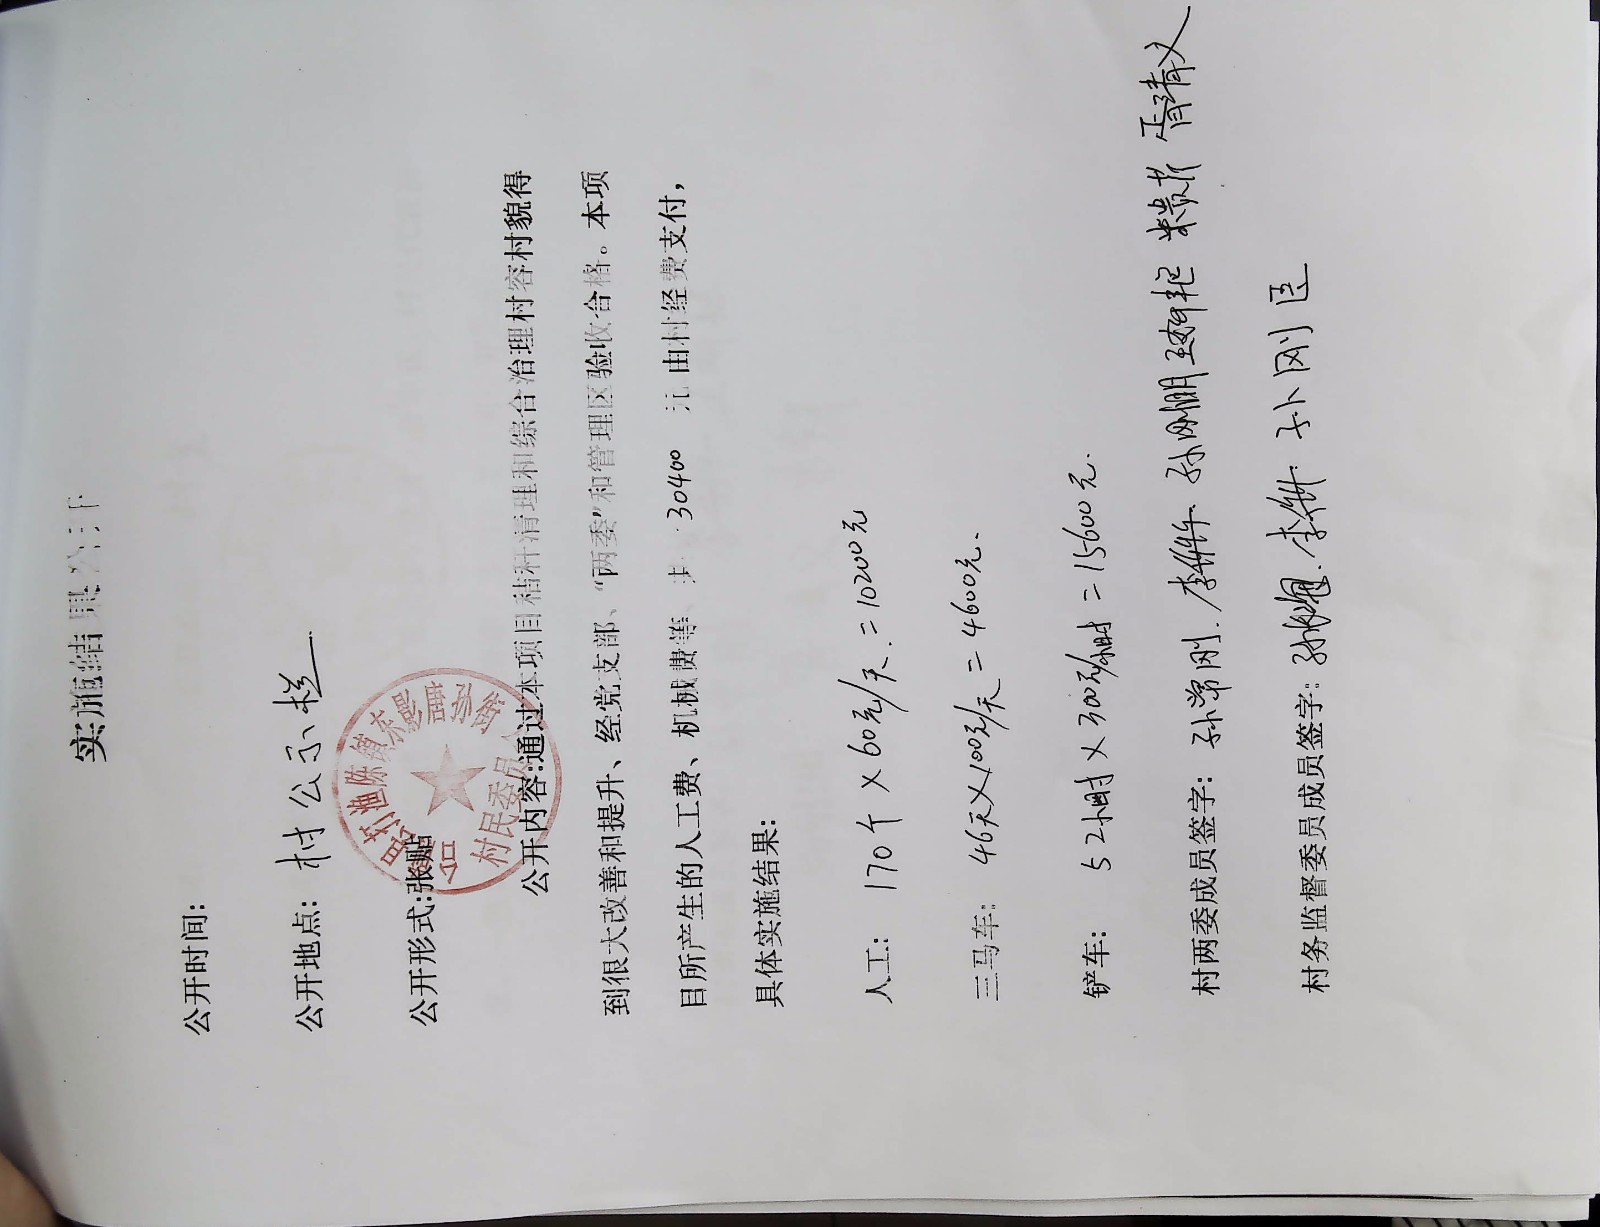 实施结果公开
公开时间:
公开地点: 村公示栏
公开形式:张贴
村民委员
公开内容:通过本项目秸秆清理和综合治理村容村貌得
到很大改善和提升、经党支部、“两委”和管理区验收合格。本项
目所产生的人工费、机械费等、共 30400 元由村经费支付,
具体实施结果:
人工: 170个×60元/天.=10200元
三马车: 46天×100元/天=4600元.
铲车: 52小时×300元/小时=15600元.
村两委成员签字: 孙常刚.
村务监督委员成员签字: 孙刚臣